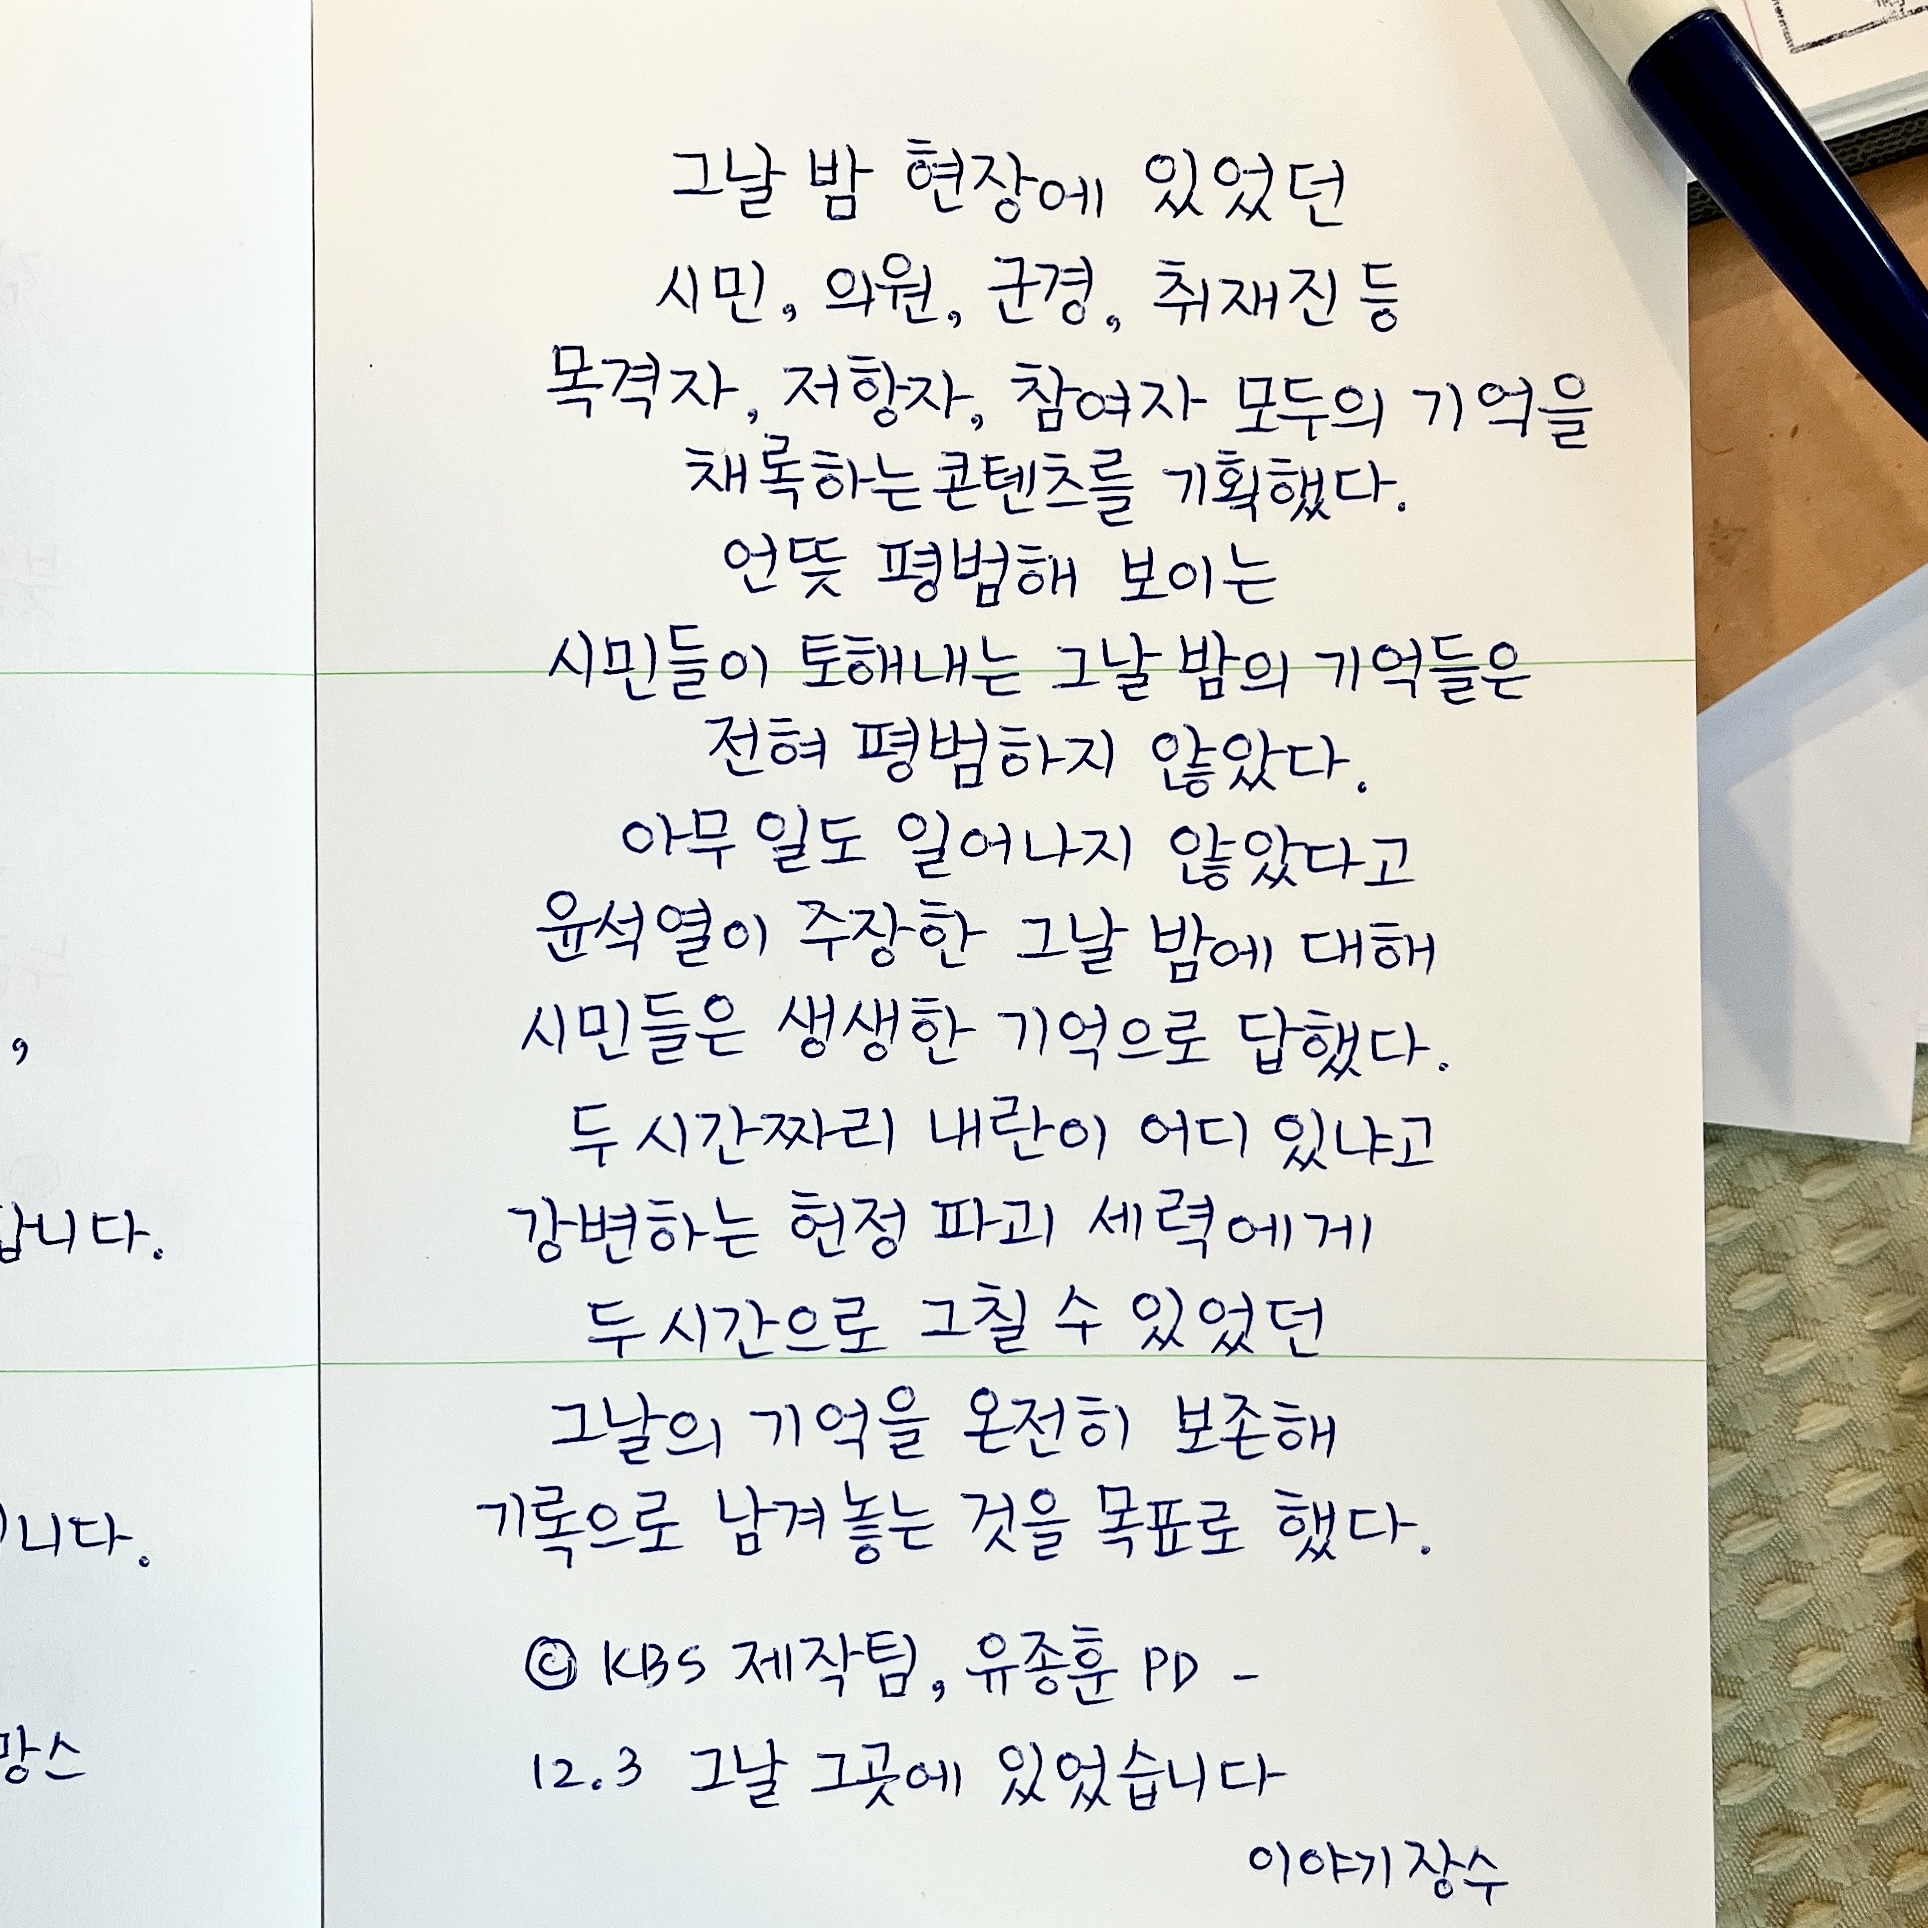 그날 밤 현장에 있었던
시민, 의원, 군경, 취재진 등
목격자, 저항자, 참여자 모두의 기억을
채록하는 콘텐츠를 기획했다.
언뜻 평범해 보이는
시민들이 토해내는 그날 밤의 기억들은
전혀 평범하지 않았다.
아무 일도 일어나지 않았다고
윤석열이 주장한 그날 밤에 대해
시민들은 생생한 기억으로 답했다.
두 시간짜리 내란이 어디 있냐고
강변하는 헌정 파괴 세력에게
두 시간으로 그칠 수 있었던
그날의 기억을 온전히 보존해
기록으로 남겨놓는 것을 목표로 했다.
© KBS 제작팀, 유종훈 PD -
12.3 그날 그곳에 있었습니다
이야기장수
,
니다.
니다.
망스